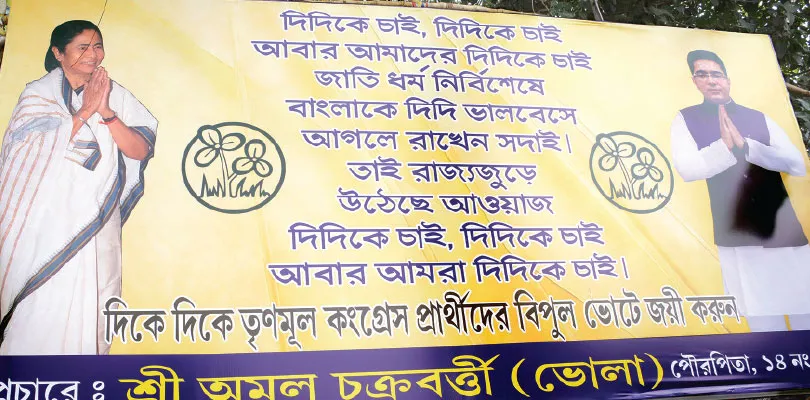 দিদিকে চাই, দিদিকে চাই
আবার আমাদের দিদিকে চাই
জাতি ধর্ম নির্বিশেষে
বাংলাকে দিদি ভালবেসে
আগলে রাখেন সদাই।
তাই রাজ্যজুড়ে
উঠেছে আওয়াজ
দিদিকে চাই, দিদিকে চাই
আবার আমরা দিদিকে চাই।
দিকে দিকে তৃণমূল কংগ্রেস প্রার্থীদের বিপুল ভোটে জয়ী করুন
প্রচারে : শ্রী অমল চক্রবর্ত্তী (ভোলা) পৌরপিতা, ১৪ নং